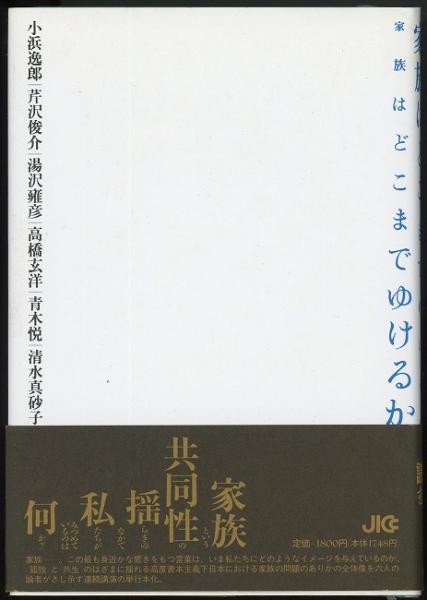 家族はどこまでゆけるか
小浜逸郎|芹沢俊介|湯沢雍彦|高橋玄洋|青木悦|清水真砂子
家族という
共同性の
揺らぎの
なかで
私たちが
みつめて
いるのは
何か?
JICC
定価1800円/本体1748円
家族――。この最も身近かな響きをもつ言葉は、いま私たちにどのようなイメージを与えているのか。
"孤独"と"共生"のはざまに揺れる高度資本主義下日本における家族の問題のありかの全体像を六人の
論者がさし示す連続講演の単行本化。